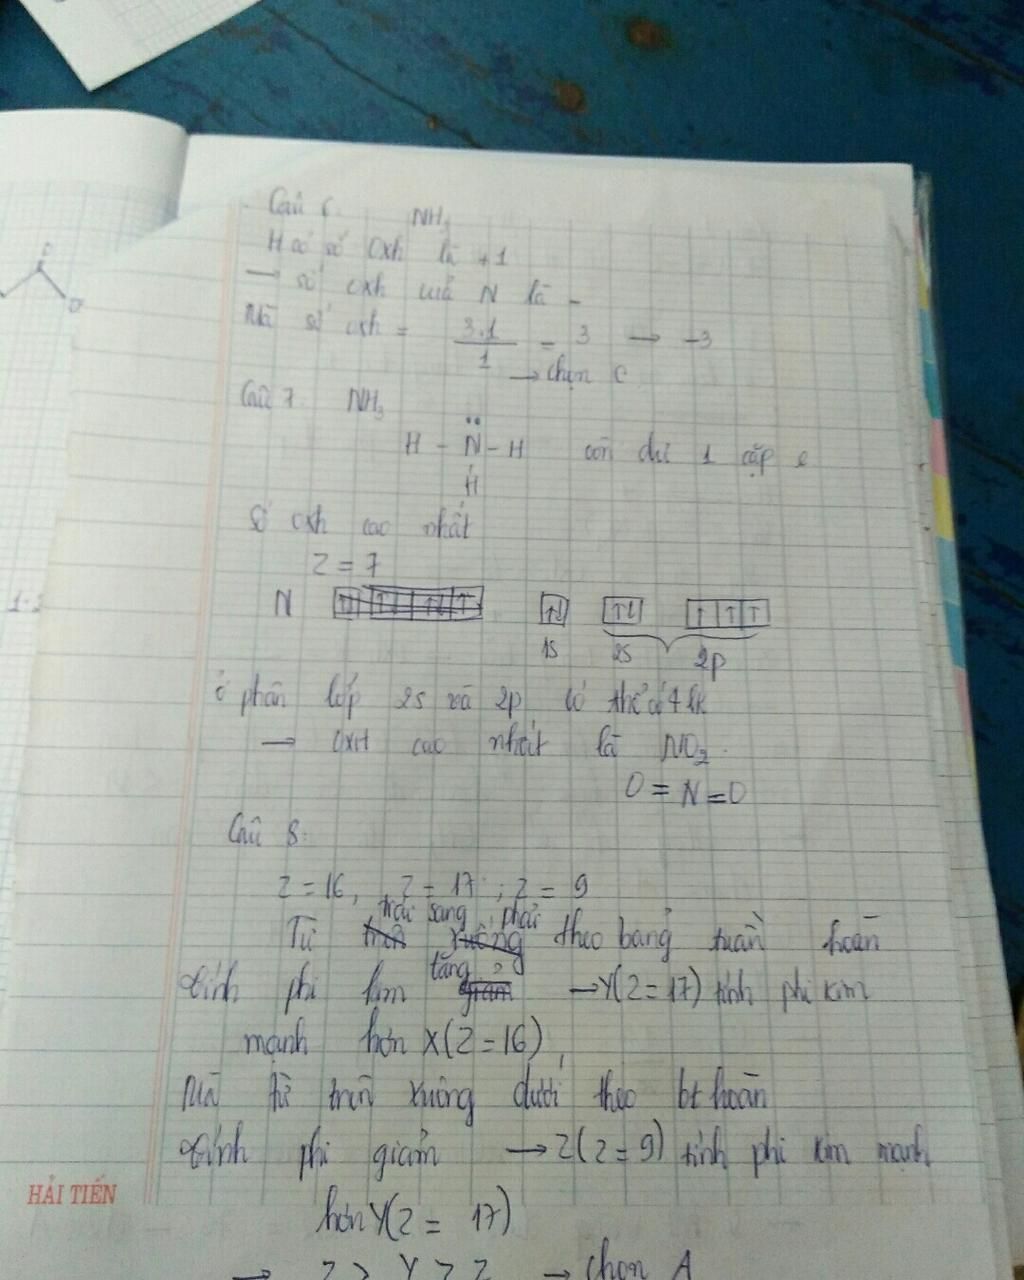 Câu 6. NH3
H có số oxh là +1
→ số oxh của N là -
Mà số oxh = 3.1 / 1 = 3 → -3
→ chọn C
Câu 7 NH3
H - N̈ - H còn dư 1 cặp e
H
Số oxh cao nhất
Z = 7
N ↑↓ ↑↓ ↑↑↑
1s 2s 2p
ở phân lớp 2s và 2p có thể có 4 lk
→ oxit cao nhất là NO2.
O = N = O
Câu 8.
Z = 16, Z = 17 ; Z = 9
trái sang phải
Từ trên xuống theo bảng tuần hoàn
tăng
tính phi kim giảm → Y(Z = 17) tính phi kim
mạnh hơn X(Z = 16)
Mà từ trên xuống dưới theo bt hoàn
tính phi giảm → Z(Z = 9) tính phi kim mạnh
HẢI TIẾN
hơn Y(Z = 17)
→ Z > Y > Z → chọn A
1-